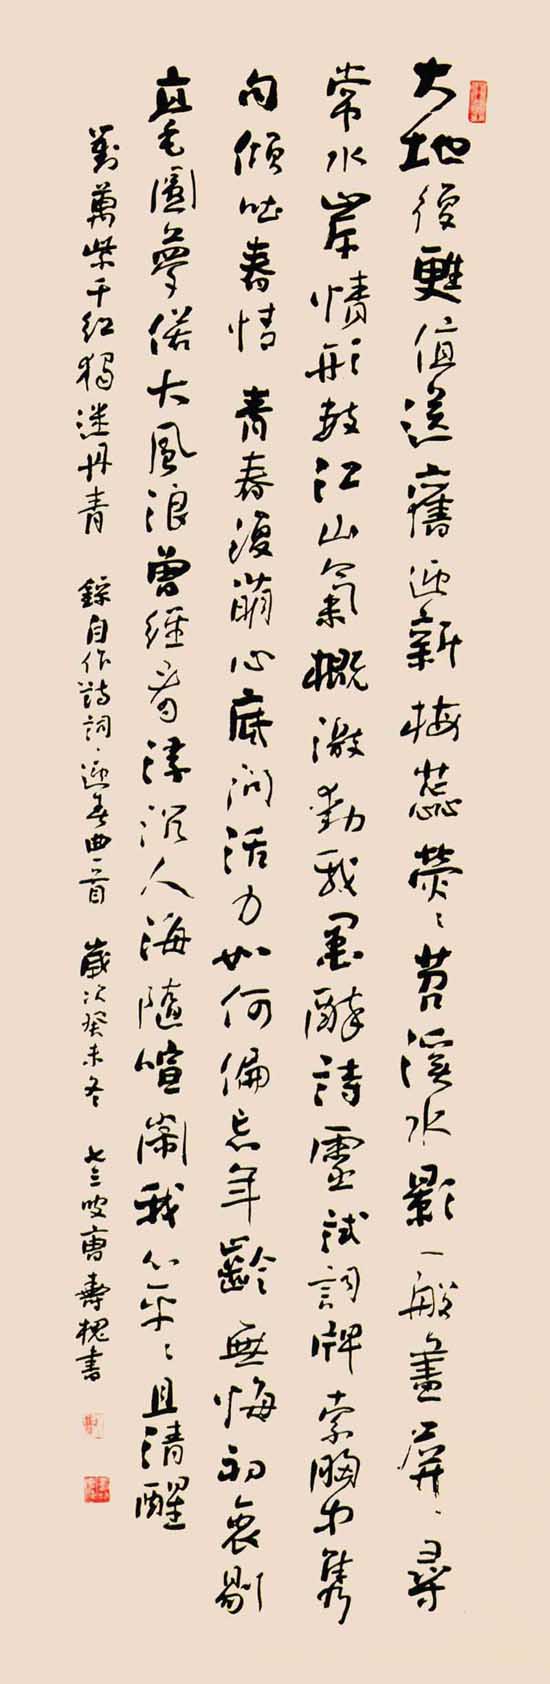 大地復甦值送舊迎新梅蕊熒〻苕溪水影一般畫屏〻尋
常水岸情形教江山氣概激動我墨酣詩靈試詞牌索腸中雋
句傾吐春情 青春復萌心底問活力如何偏忘年齡無悔初衷剔
毫圓夢偌大風浪曾經看浮沉人海隨喧鬧我心平〻且清醒
對萬紫千紅獨迷丹青 錄自作詩詞·迎春曲一首 歲次癸未冬 七三叟曹壽槐書